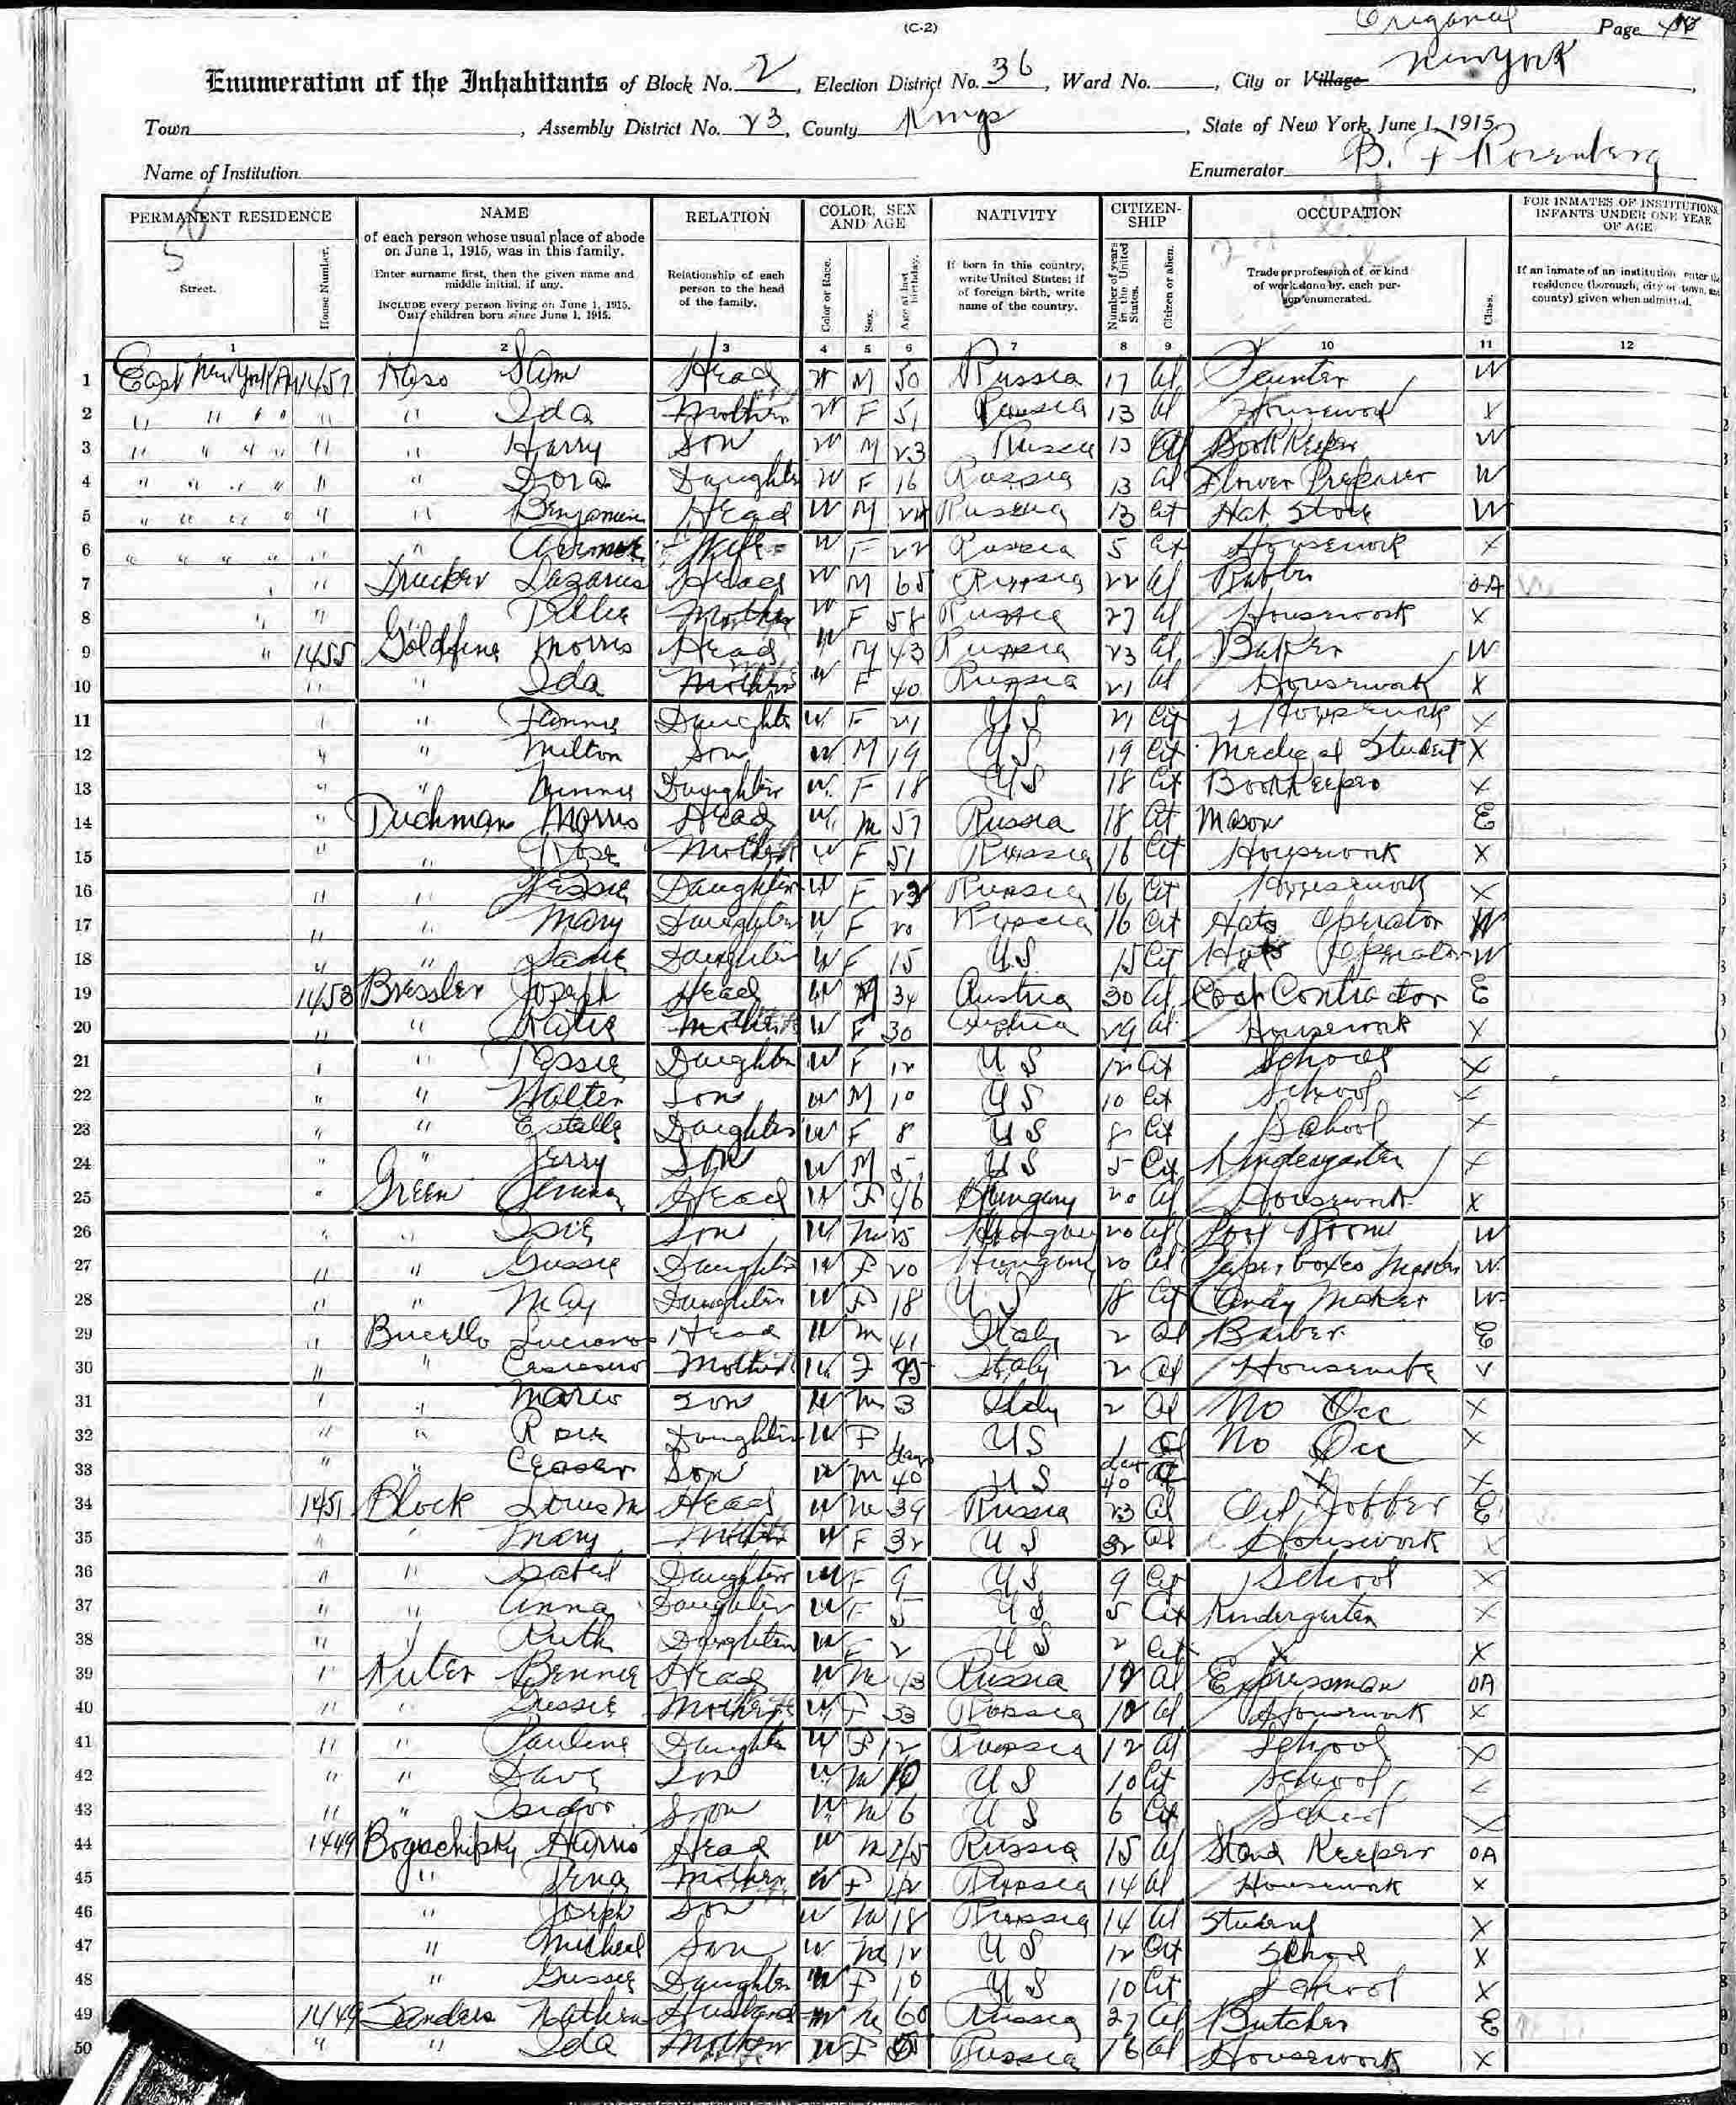 (C-2)
Original Page
Enumeration of the Inhabitants of Block No. 2, Election District No. 36, Ward No. , City or Village New York,
Town , Assembly District No. 23, County Kings, State of New York, June 1, 1915.
Name of Institution Enumerator B. F. Rosenberg
PERMANENT RESIDENCE NAME RELATION COLOR, SEX AND AGE NATIVITY CITIZENSHIP OCCUPATION FOR INMATES OF INSTITUTIONS, INFANTS UNDER ONE YEAR OF AGE
Street. House Number. of each person whose usual place of abode on June 1, 1915, was in this family. Enter surname first, then the given name and middle initial, if any. INCLUDE every person living on June 1, 1915. OMIT children born since June 1, 1915. Relationship of each person to the head of the family. Color or Race. Sex. Age at last birthday. If born in this country, write United States; if of foreign birth, write name of the country. Number of years in the United States. Citizen or alien. Trade or profession of, or kind of work done by, each person enumerated. Class. If an inmate of an institution enter residence (borough, city or town, and county) given when admitted.
1 2 3 4 5 6 7 8 9 10 11 12
1 East New York Av 1457 Sam Head W M 50 Russia 17 Al W
2 " " " " " " Ida Mother W F 51 Russia 13 Al Housework X
3 " " " " " " Harry Son W M 23 Russia 13 Book Keeper W
4 " " " " " " Dora Daughter W F 16 Russia 13 Al Flower Preparer W
5 " " " " " " Benjamin Head W M 24 Russia 13 Cit Hat Store W
6 " " " " " " Wife W F 22 Russia 5 Cit Housework X
7 " " Drucker Lazarus Head W M 65 Russia 22 Al OA
8 " " " Mother W F 58 Russia 27 Al Housework X
9 " 1455 Goldfine Morris Head W M 43 Russia 23 Al Baker W
10 " " Ida Mother W F 40 Russia 21 Al Housework X
11 " " Fannie Daughter W F 21 U S 21 Cit Housework X
12 " " Milton Son W M 19 U S 19 Cit Medical Student X
13 " " Minnie Daughter W F 18 U S 18 Cit Bookkeeper X
14 " Duchman Morris Head W M 57 Russia 18 Cit Mason E
15 " " Rose Mother W F 51 Russia 16 Cit Housework X
16 " " Jessie Daughter W F 23 Russia 16 Cit Housework X
17 " " Mary Daughter W F 20 Russia 16 Cit Hats Operator W
18 " " Sadie Daughter W F 15 U S 15 Cit Hats Operator W
19 1453 Bressler Joseph Head W M 34 Austria 30 Al Contractor E
20 " " Katie Mother W F 30 Austria 29 Al Housework X
21 " " Tessie Daughter W F 12 U S 12 Cit School X
22 " " Walter Son W M 10 U S 10 Cit School X
23 " " Estelle Daughter W F 8 U S 8 Cit School X
24 " " Jerry Son W M 5 U S 5 Cit Kindergarten X
25 " Green Head W F 46 Hungary 20 Al Housework X
26 " " Son W M 25 Hungary 20 Al Pool Room W
27 " " Gussie Daughter W F 20 Hungary 20 Al Paper boxes Maker W
28 " " May Daughter W F 18 U. S 18 Cit Candy Maker W
29 " Bucello Luciano Head W M 41 Italy 2 Al Barber E
30 " " Mother W F Italy 2 Al Housewife
31 " " Mario Son W M 3 Italy 2 Al No Occ X
32 " " Rosie Daughter W F 1 U S 1 No Occ X
33 " " Ceaser Son W M days 40 U S days 40 X X
34 1451 Block Louis M Head W M 39 Russia 23 Al Jobber E
35 " " Mary W F 32 U S 32 Housework X
36 " " Isabel Daughter W F 9 U S 9 Cit School X
37 " " Anna Daughter W F 5 U S 5 Cit Kindergarten X
38 " " Ruth Daughter W F 2 U S 2 Cit X X
39 " Kuter Bennie Head W M 43 Russia Al Expressman OA
40 " " Gussie Mother W F 33 Russia Al Housework X
41 " " Pauline Daughter W F 12 Russia 12 Al School X
42 " " Dave Son W M 10 U S 10 Cit School X
43 " " Isidor Son W M 6 U S 6 Cit School X
44 1449 Head W M 45 Russia 15 Al Stand Keeper OA
45 " " Mother W F 42 Russia 14 Al Housework X
46 " Joseph Son W M 18 Russia 14 Al Student X
47 " Micheal Son W M 12 U S 12 Cit School X
48 " Gussie Daughter W F 10 U S 10 Cit School X
49 1449 Sanders Nathan Husband W M 60 Russia 27 Al Butcher E
50 " " Ida Mother W F Russia 16 Al Housework X